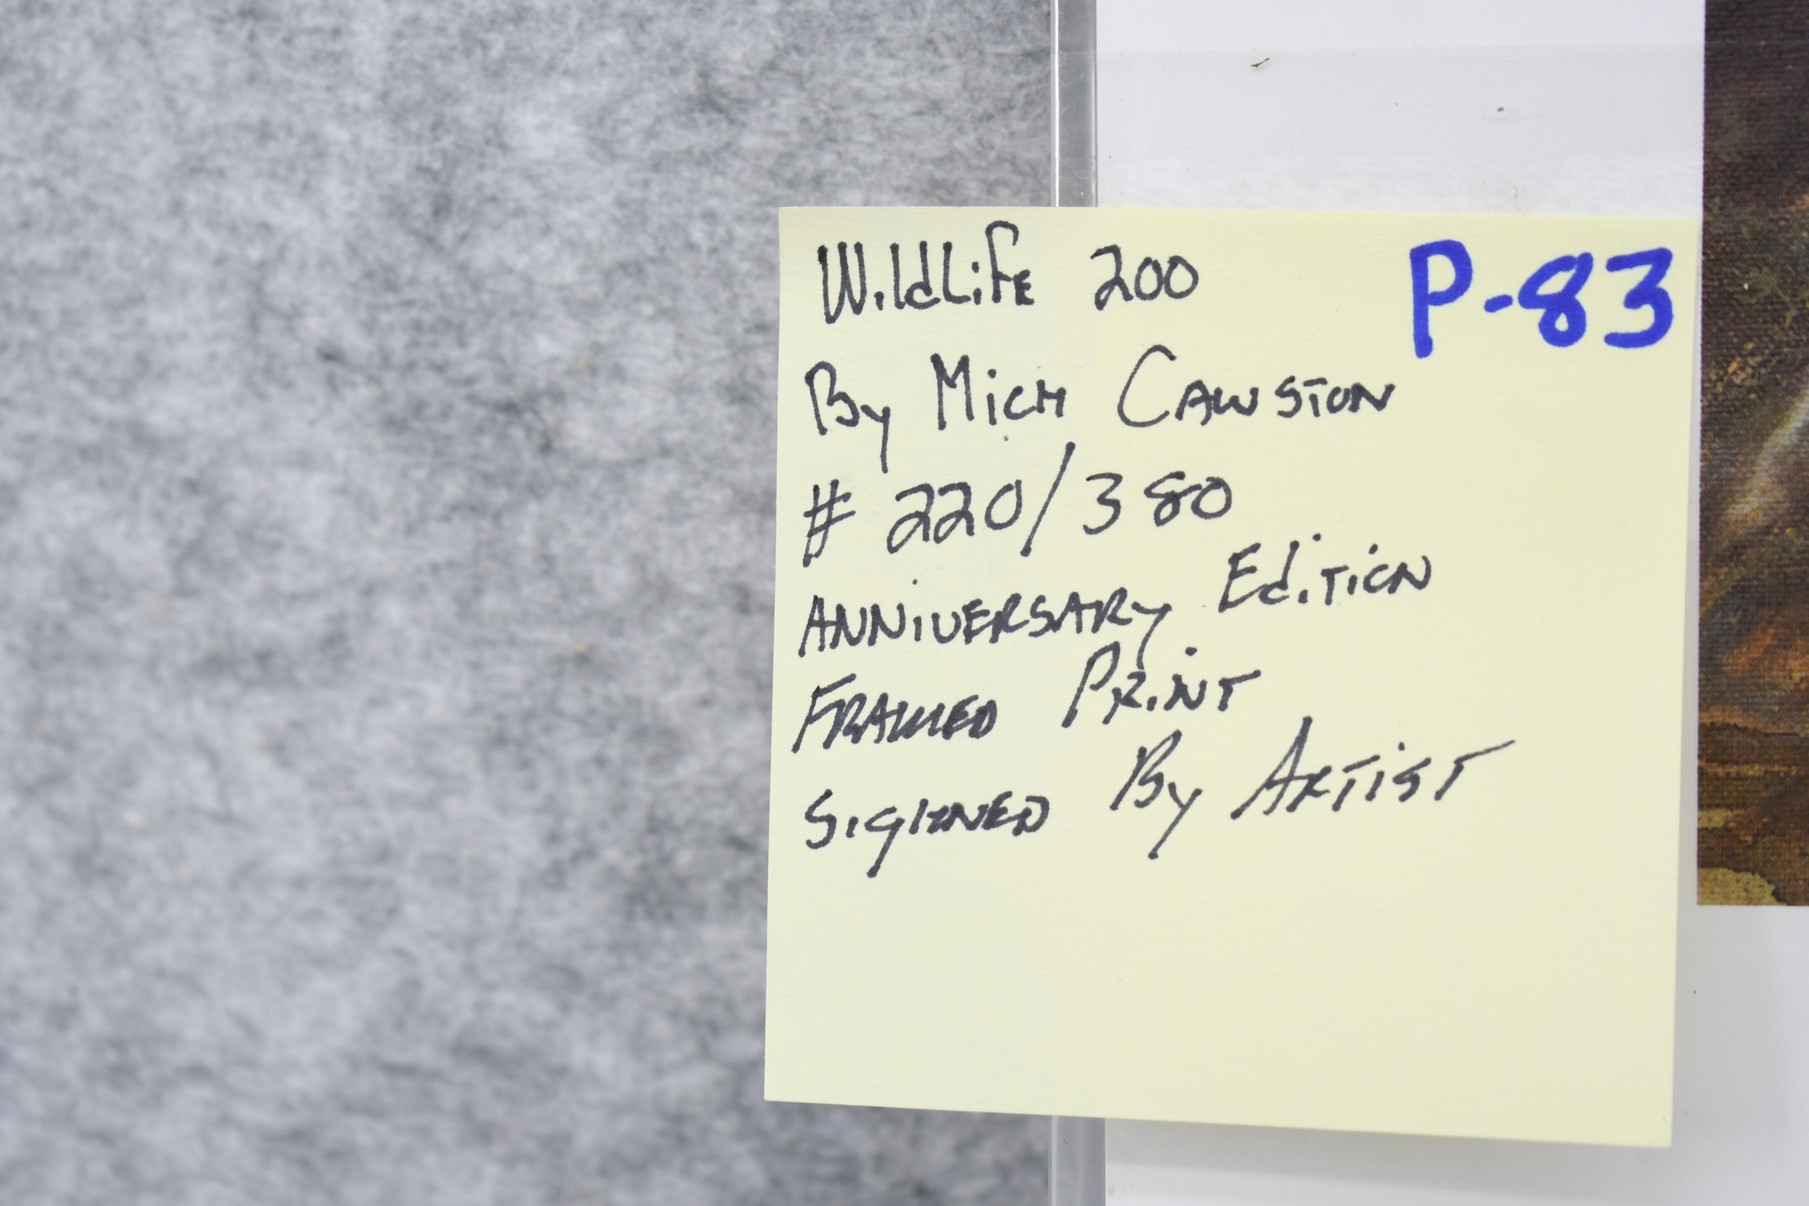 WildLife 200 P-83
By Mich Cawston
# 220/380
Anniversary Edition
Framed Print
Signed By Artist